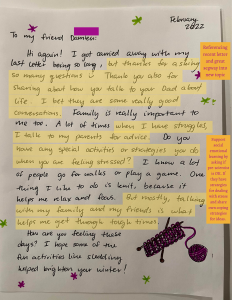 February
2022
To my friend Damieu:
Hi again! I got carried away with my
last letter being so long, but thanks for asking
so many questions :) Thank you also for
sharing about how you talk to your Dad about
life. I bet they are some really good
conversations. Family is really important to
me too. A lot of times when I have struggles,
I talk to my parents for advice. Do you
have any special activities or strategies you do
when you are feeling stressed? I know a lot
of people go for walks or play a game. One
thing I like to do is knit, because it
helps me relax and focus. But mostly, talking
with my family and my friends is what
helps me get through tough times.
How are you feeling these
days? I hope some of the
fun activities like sledding,
helped brighten your winter!
Referencing
recent letter
and great
segway into
new topic
Support
social
emotional
learning by
asking if